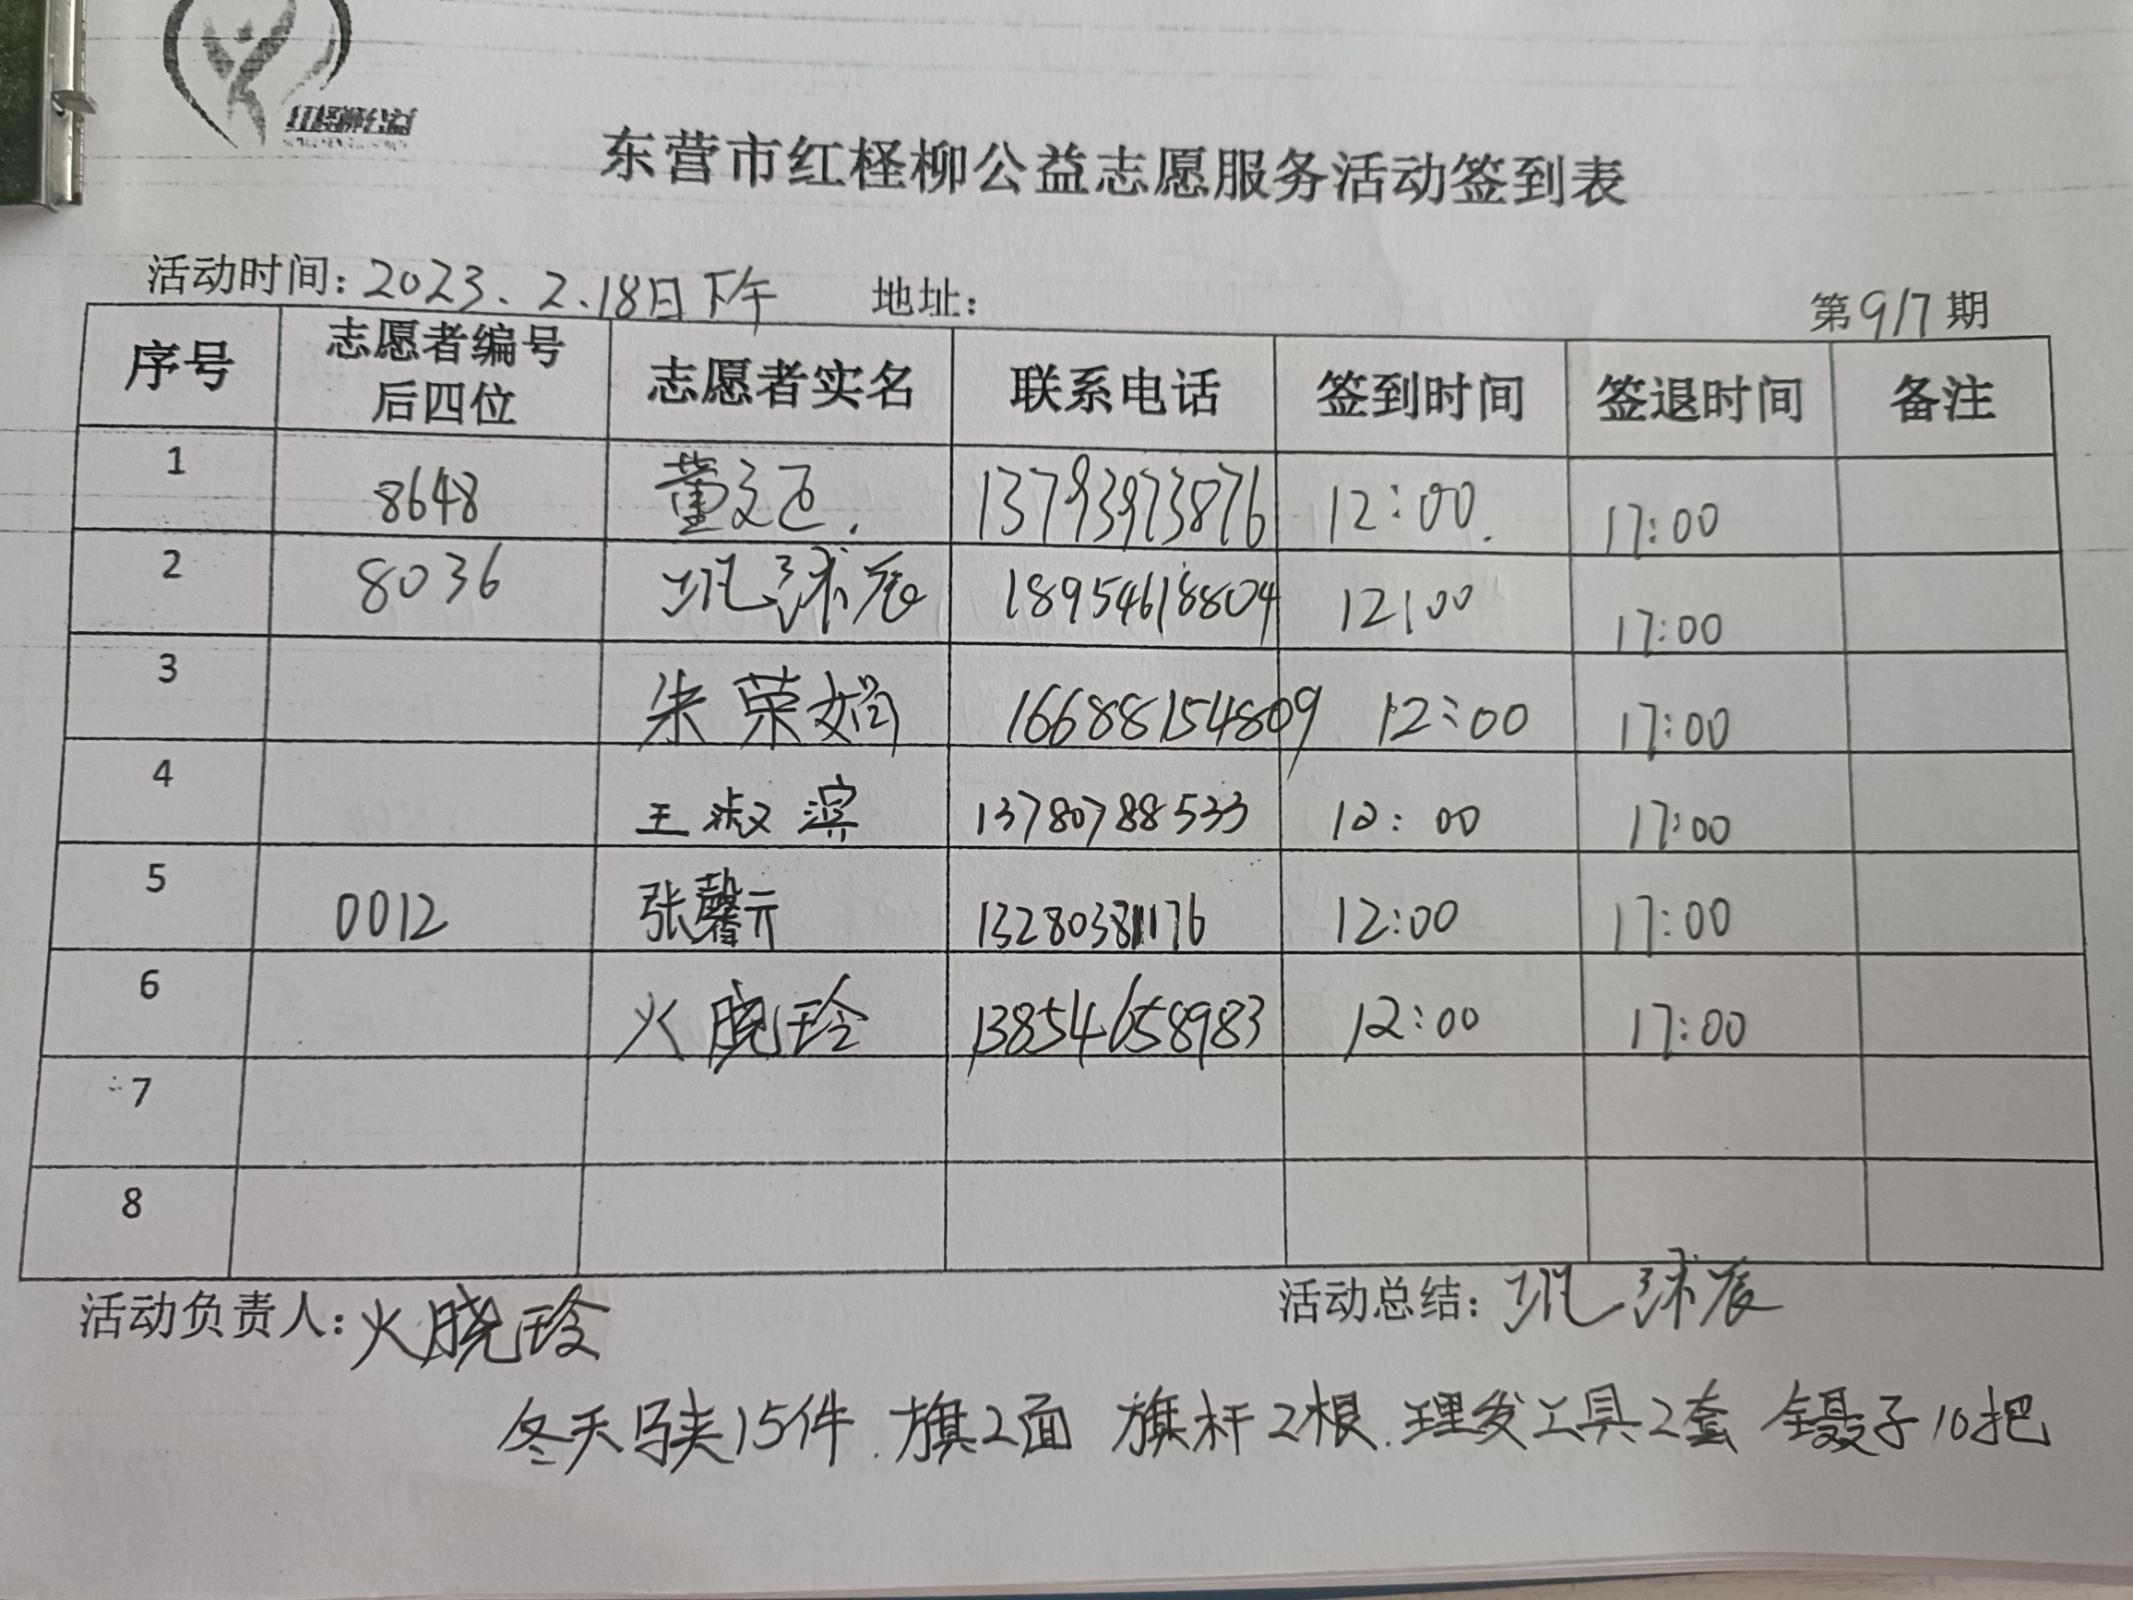 红柽柳公益
东营市红柽柳公益志愿服务活动签到表
活动时间：2023.2.18日下午 地址： 第917期
序号 志愿者编号后四位 志愿者实名 联系电话 签到时间 签退时间 备注
1 8648 董文 13793973876 12:00. 17:00
2 8036 辰 18954618804 12:00 17:00
3 朱荣娟 16688154809 12:00 17:00
4 王淑滨 13780788533 12:00 17:00
5 0012 张馨元 13280381176 12:00 17:00
6 火晓玲 13854658983 12:00 17:00
7
8
活动负责人：火晓玲 活动总结：辰
冬天马夹15件.旗2面 旗杆2根.理发工具2套 镊子10把